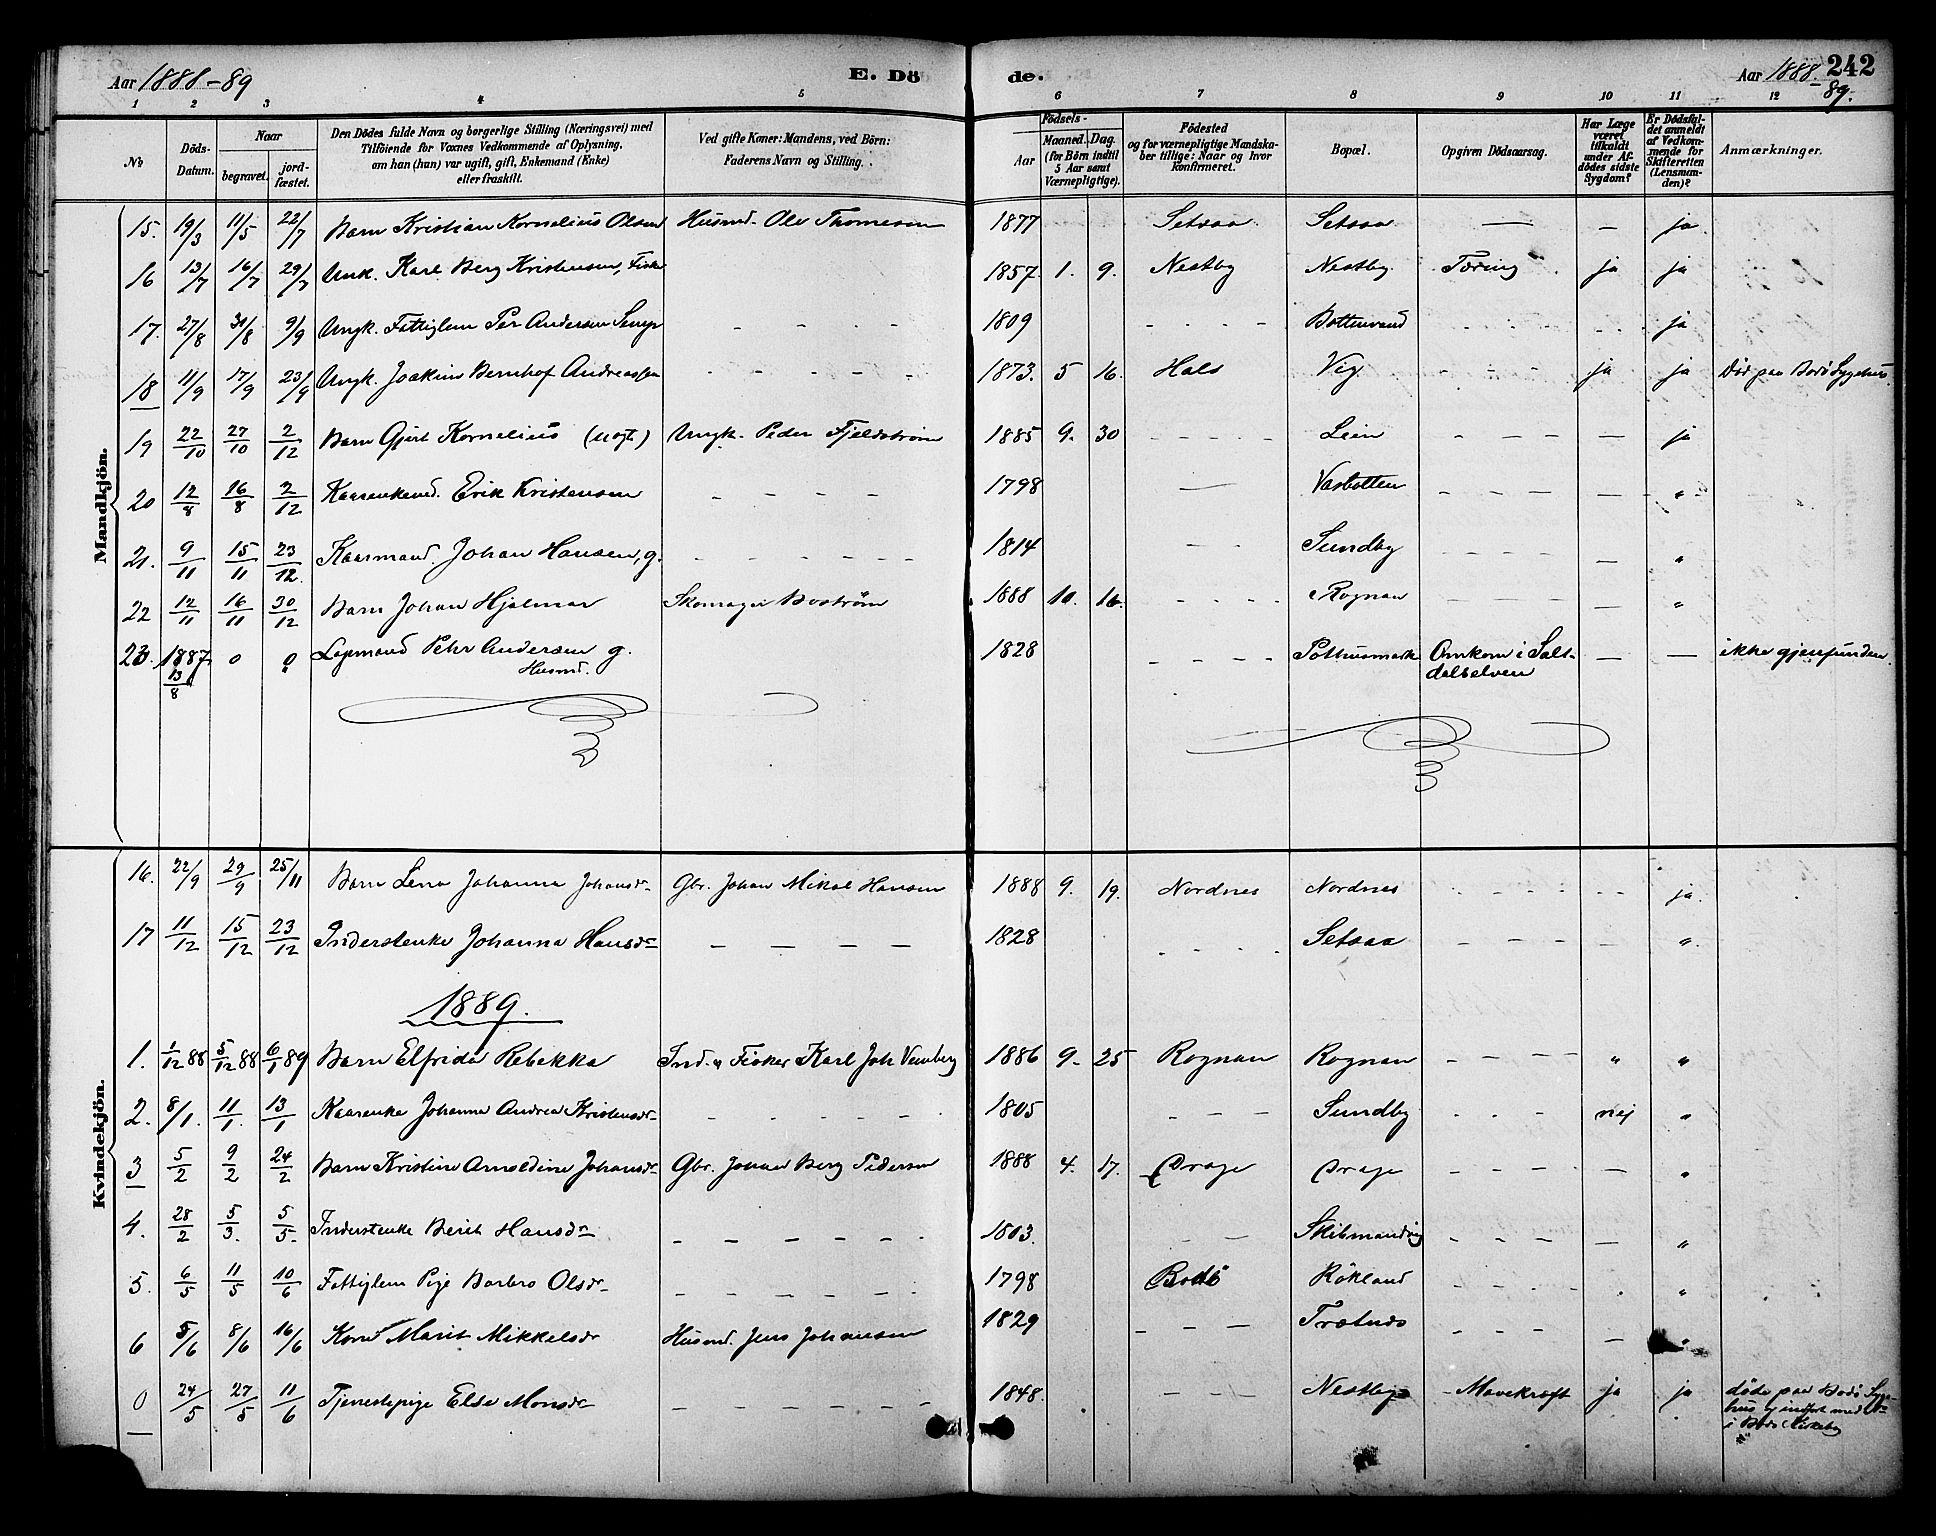 Aar 1888-89
E. Dö
de.
Aar 1888-89.
242
1 2 3 4 5 6 7 8 9 10 11 12
No
Döds-Datum.
Naar
begravet.
jord-fæstet.
Den Dödes fulde Navn og borgerlige Stilling (Næringsvei) med
Tilföiende for Voxnes Vedkommende af Oplysning,
om han (hun) var ugift, gift, Enkemand (Enke)
eller fraskilt.
Ved gifte Koner: Mandens, ved Börn:
Faderens Navn og Stilling.
Födsels-
Aar
Maaned. Dag.
(for Börn indtil
5 Aar samt
Værnepligtige).
Födested
og for værnepligtige Mandska-
ber tillige: Naar og hvor
Konfirmeret.
Bopæl.
Opgiven Dödsaarsag.
Har Læge
været
tilkaldt
under Af-
dödes sidste
Sygdom?
Er Dödsfal-
det anmeldt
af Vedkom-
mende for
Skifteretten
(Lensman-
den)?
Anmærkninger.
Mandkjön.
15. 19/3 11/5 22/7 Barn Kristian Kornelius Olsen Husmd. Ole Thomesen 1877 Setsaa Setsaa — — ja
16 13/7 16/7 29/7 Unk. Karl Berg Kristensen, Fisker 1857. 1. 9. Nestby Nestby. Tæring ja ja
17. 27/8 31/8 9/9 Ungk. Fattiglem Per Andersen 1809 Bottenvand ja
18 11/9 17/9 23/9 Ungk. Joakim Bernhof Andreassen 1873. 5 16. Hals Vig ja ja Död paa Bodö Sygehus.
19 22/10 27/10 2/12 Barn Gjert Kornelius (uægt) Ungk. Peder Fjeldström 1885 9. 30 Lein — ja
20 12/8 16/8 2/12 Kaarenkemd. Erik Kristensen 1798 — Vasbotten — "
21. 9/11 15/11 23/12. Kaarmand. Johan Hansen, g. 1814 Sundby — "
22 12/11 16/11 30/12 Barn Johan Hjalmar Skomager Boström 1888 10. 16. Rognan — "
23. 1887 13/8 0 0 Lapmand Pehr Andersen g. Husmd. 1828 Pothusmark Omkom i Salt-
delselven — — ikke gjenfunden.
Kvindekjön.
16. 22/9 29/9 25/11 Barn Lena Johanna Johansdr Gbr. Johan Mikal Hansen 1888 9. 19. Nordnes Nordnes ja.
17 11/12 15/12 23/12 Inderstenke Johanna Hansdr 1828 Setsaa "
1889.
1. 1/12 88 5/12 88 6/1 89 Barn Elfrida Rebekka Ind. & Fisker Karl Joh 1886 9. 25 Rognan Rognan " "
2. 8/1. 11/1. 13/1 Kaarenke Johanna Andrea Kristensdr 1805 Sundby nej "
3 5/2 9/2 24/2 Barn Kristine Arnoldine Johansdr Gbr. Johan Berg Pedersen 1888 4. 17. Drage Drage — "
4. 28/2 5/3. 5/5. Inderstenke Berit Hansdr 1803. Skibmandvig — "
5. 6/5 11/5 10/6 Fattiglem Pige Barbro Olsdr 1798 Bodö Rökland . "
6 5/6 8/6 16/6 Kone Marit Mikkelsdr Husmd. Jens Johansen 1829 — "
0 24/5 27/5 11/6 Tjenestepige Else Monsdr 1848. Nestby Mavekræft ja ja döde paa Bodö Syge-
hus indfört med
i Bodö Kirkebog